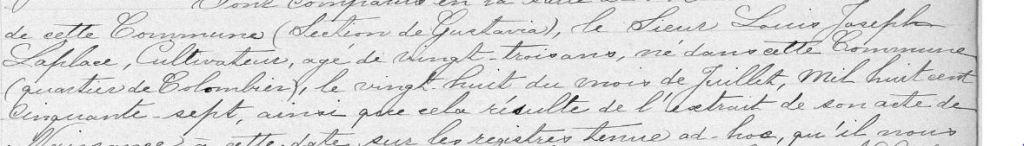 Sont comparus en la
de cette Commune (Section de Gustavia), le Sieur Louis Joseph
Laplace, Cultivateur, agé de vingt-trois ans, né dans cette Commune
(quartier de Colombier), le vingt-huit du mois de Juillet, Mil huit cent
Cinquante-sept, ainsi que cela résulte de l'extrait de son acte de
Naissance à cette date sur les registres tenue ad-hoc, qu'il nous